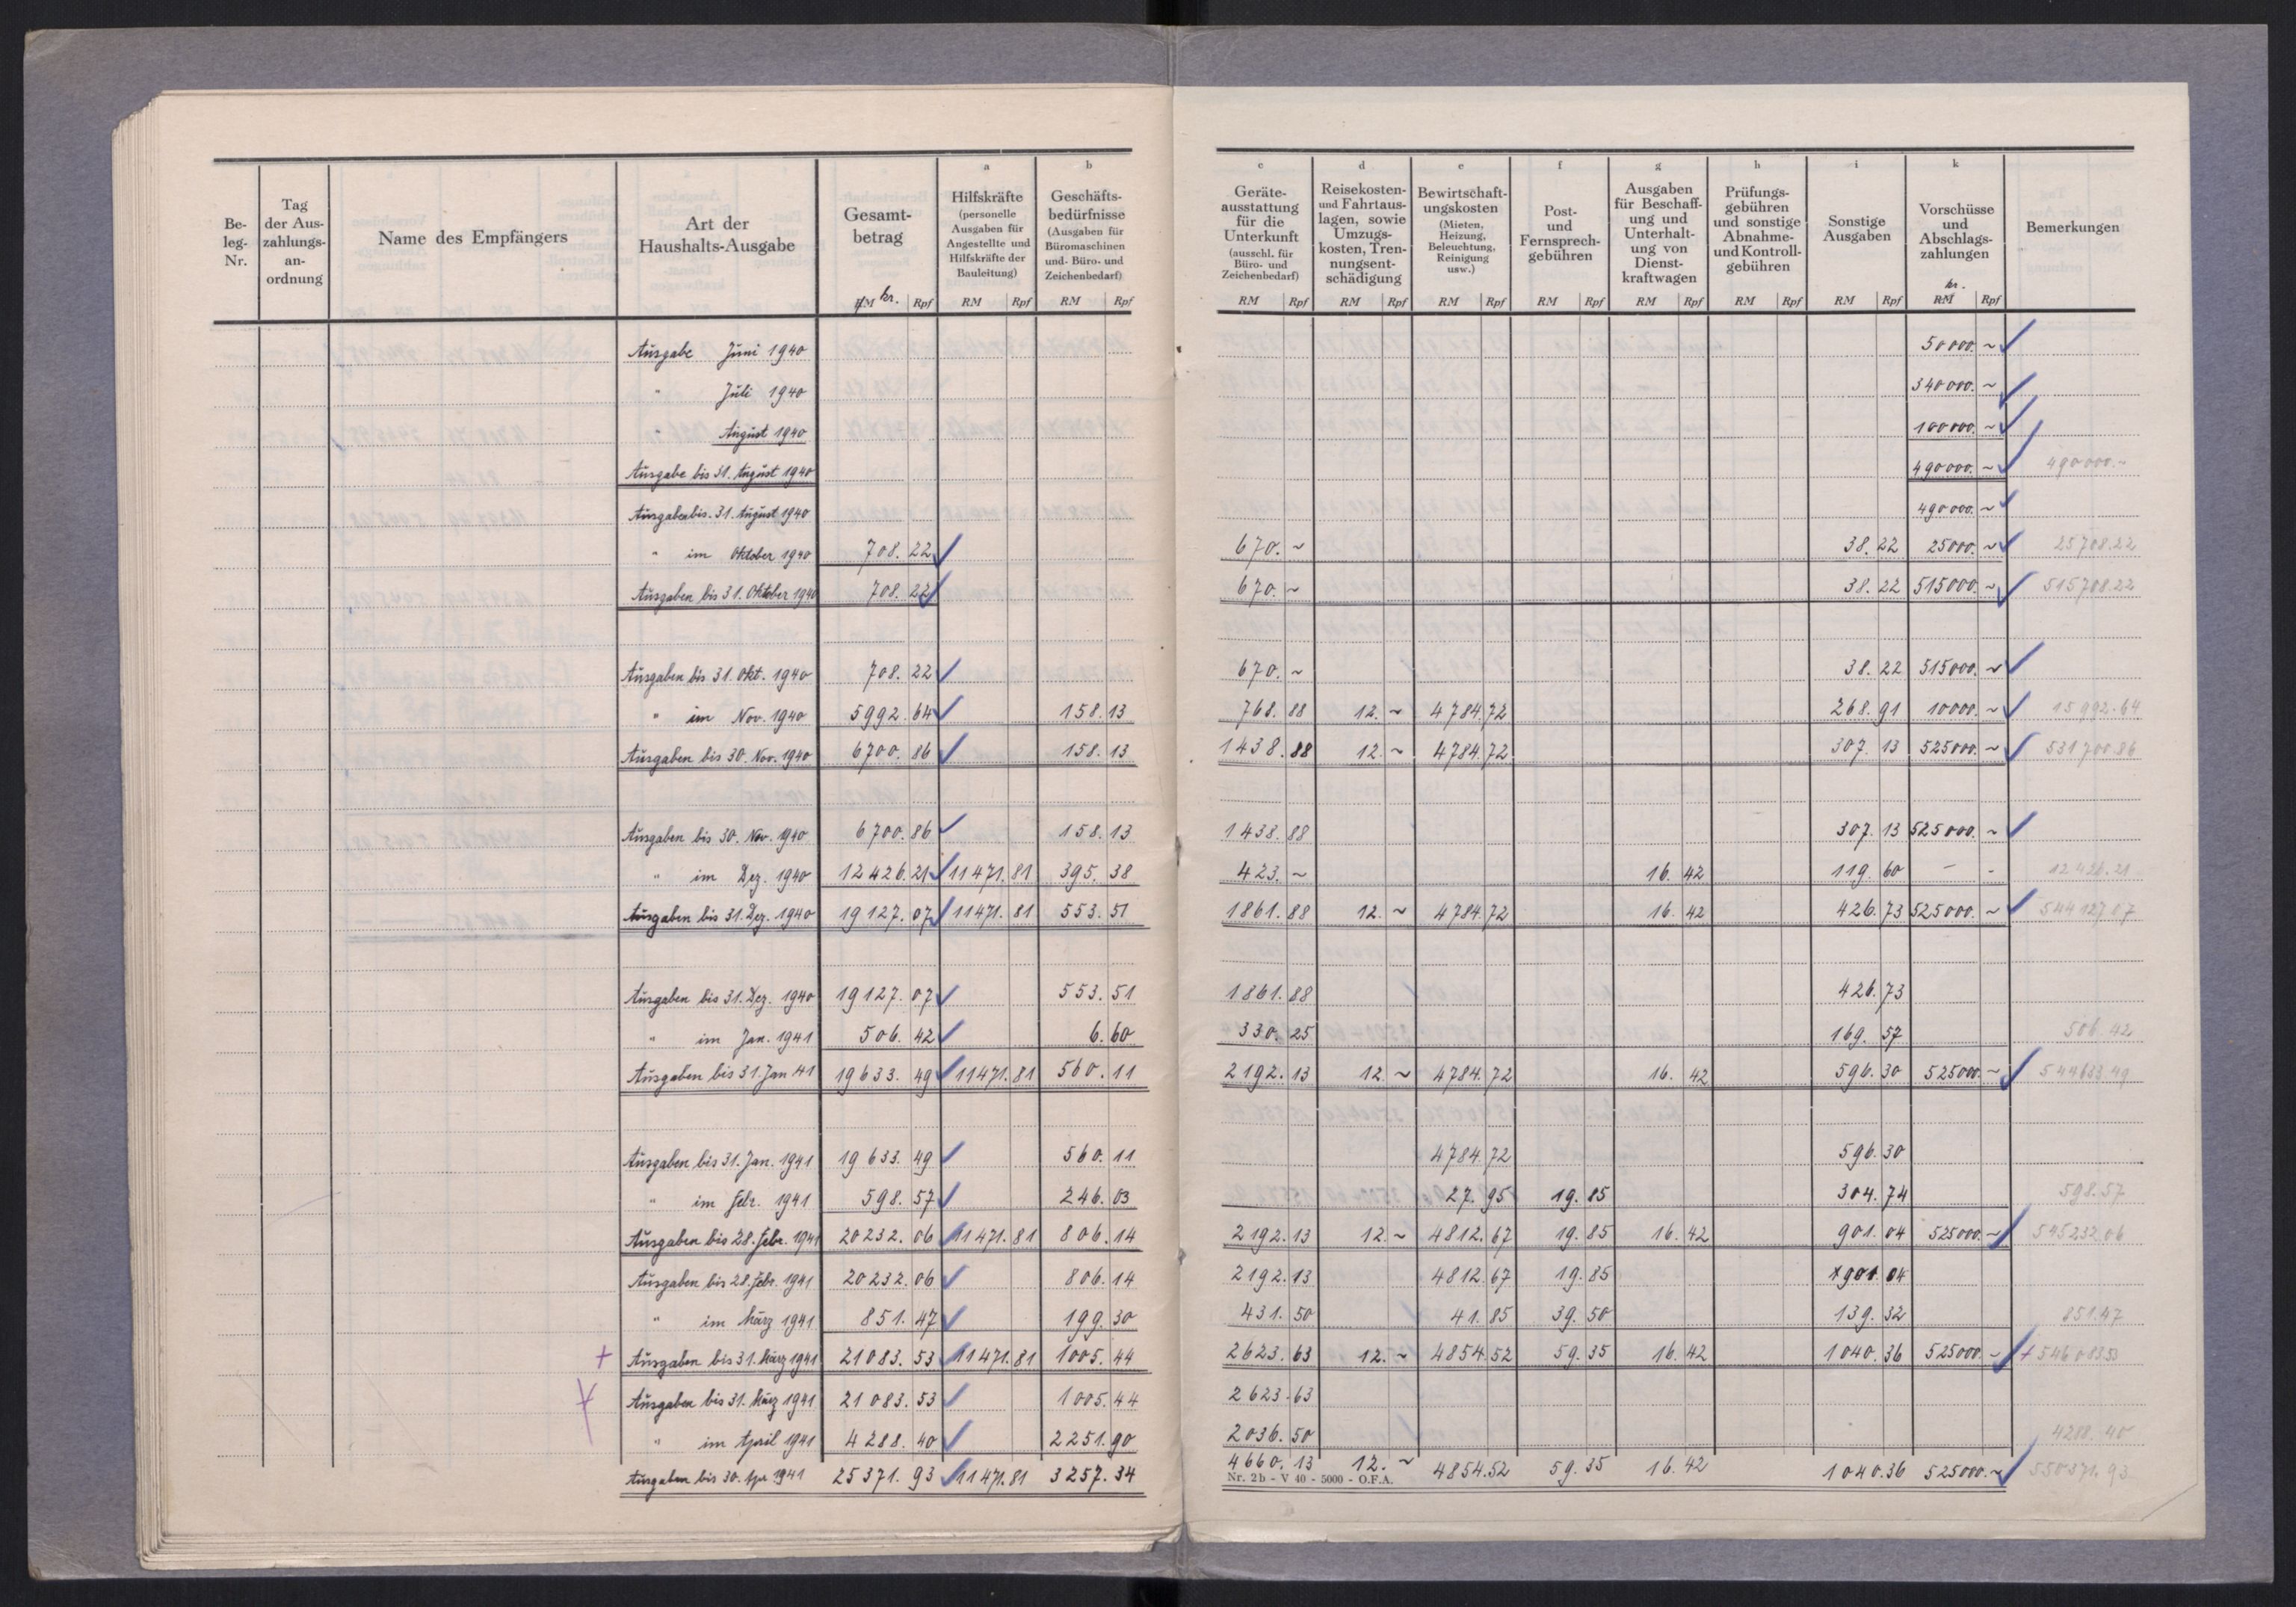 Be-
leg-
Nr.
Tag
der Aus-
zahlungs-
an-
ordnung
Name des Empfängers
Art der
Haushalts-Ausgabe
Gesamt-
betrag
kr. Rpf
a
Hilfskräfte
(personelle
Ausgaben für
Angestellte und
Hilfskräfte der
Bauleitung)
RM Rpf
b
Geschäfts-
bedürfnisse
(Ausgaben für
Büromaschinen
und- Büro- und
Zeichenbedarf)
RM Rpf
c
Geräte-
ausstattung
für die
Unterkunft
(ausschl. für
Büro- und
Zeichenbedarf)
RM Rpf
d
Reisekosten-
und Fahrtaus-
lagen, sowie
Umzugs-
kosten, Tren-
nungsent-
schädigung
RM Rpf
e
Bewirtschaft-
ungskosten
(Mieten,
Heizung,
Beleuchtung,
Reinigung
usw.)
RM Rpf
f
Post-
und
Fernsprech-
gebühren
RM Rpf
g
Ausgaben
für Beschaff-
ung und
Unterhalt-
ung von
Dienst-
kraftwagen
RM Rpf
h
Prüfungs-
gebühren
und sonstige
Abnahme-
und Kontroll-
gebühren
RM Rpf
i
Sonstige
Ausgaben
RM Rpf
k
Vorschüsse
und
Abschlags-
zahlungen
kr.
RM Rpf
Bemerkungen
Ausgabe Juni 1940 50000. ~
" Juli 1940 340000. ~
" August 1940 100000. ~
Ausgabe bis 31. August 1940 490000. ~ 490000.-
Ausgaben bis 31. August 1940 490000. ~
" im Oktober 1940 708. 22 670. ~ 38. 22 25000. ~ 25708.22
Ausgaben bis 31. Oktober 1940 708. 22 670. ~ 38. 22 515000. ~ 515708.22
Ausgaben bis 31. Okt. 1940 708. 22 670. ~ 38. 22 515000. ~
" im Nov. 1940 5992. 64 158. 13 768. 88 12. ~ 4784. 72 268. 91 10000. ~ 15992.64
Ausgaben bis 30. Nov. 1940 6700. 86 158. 13 1438. 88 12. ~ 4784. 72 307. 13 525000. ~ 531700.86
Ausgaben bis 30. Nov. 1940 6700. 86 158. 13 1438. 88 307. 13 525000. ~
" im Dez. 1940 12426. 21 11471. 81 395. 38 423. ~ 16. 42 119. 60 - - 12426.21
Ausgaben bis 31. Dez. 1940 19127. 07 11471. 81 553. 51 1861. 88 12. ~ 4784. 72 16. 42 426. 73 525000. ~ 544127.07
Ausgaben bis 31. Dez. 1940 19127. 07 553. 51 1861. 88 426. 73
" im Jan. 1941 506. 42 6. 60 330. 25 169. 57 506.42
Ausgaben bis 31. Jan 41 19633. 49 11471. 81 560. 11 2192. 13 12. ~ 4784. 72 16. 42 596. 30 525000. ~ 544633.49
Ausgaben bis 31. Jan. 1941 19633. 49 560. 11 4784. 72 596. 30
" im Febr. 1941 598. 57 246. 03 27. 95 19. 85 304. 74 598.57
Ausgaben bis 28. Febr. 1941 20232. 06 11471. 81 806. 14 2192. 13 12. ~ 4812. 67 19. 85 16. 42 901. 04 525000. ~ 545232.06
Ausgaben bis 28. Febr. 1941 20232. 06 806. 14 2192. 13 4812. 67 19. 85 901. 04
" im März 1941 851. 47 199. 30 431. 50 41. 85 39. 50 139. 32 851.47
+ Ausgaben bis 31. März 1941 21083. 53 11471. 81 1005. 44 2623. 63 12. ~ 4854. 52 59. 35 16. 42 1040. 36 525000. ~ + 546083.53
Ausgaben bis 31. März 1941 21083. 53 1005. 44 2623. 63
" im April 1941 4288. 40 2251. 90 2036. 50 4288.40
Ausgaben bis 30. Apr 1941 25371. 93 11471. 81 3257. 34 4660. 13 12. ~ 4854.52 59. 35 16. 42 1040.36 525000. ~ 550371.93
Nr. 2b - V 40 - 5000 - O.F.A.